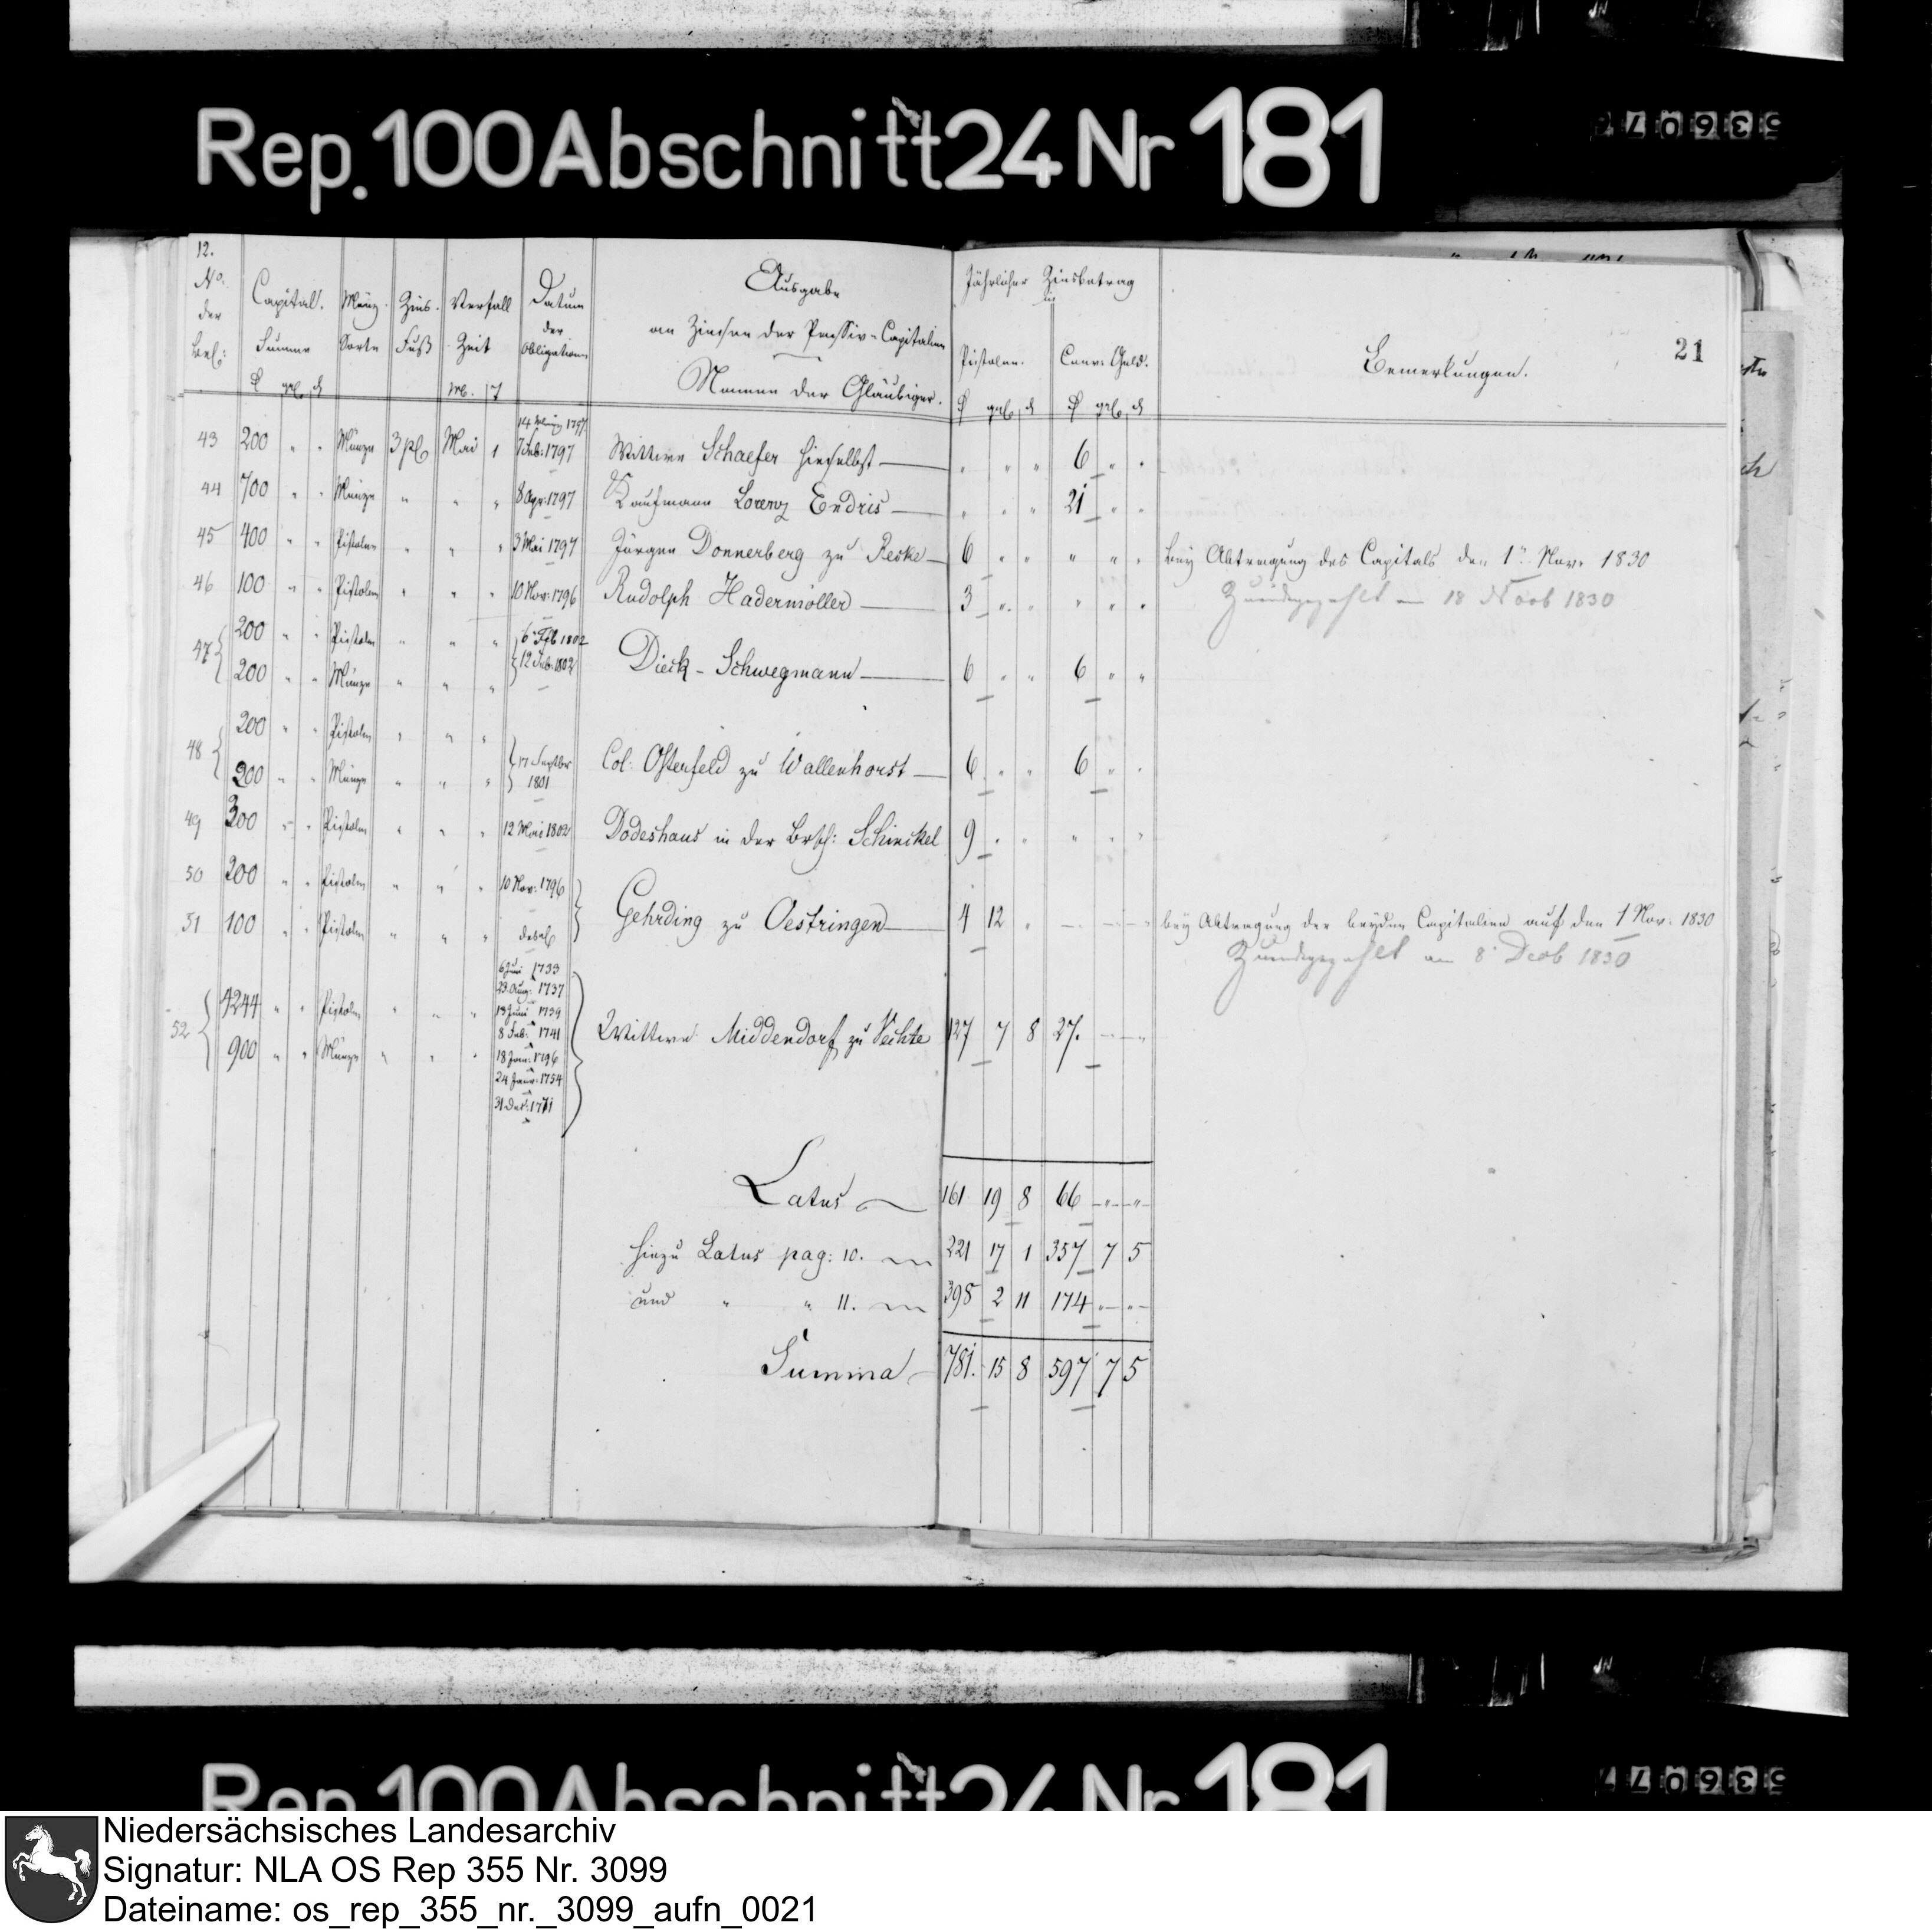 Rep. 100 Abschnitt 24 Nr 181
12.
No. der Bel:
Capital. Summe
Münz Sorte
Zins. Fuß
Verfall Zeit
Datum der Obligationen
Ausgabe
an Zinsen der Passiv-Capitalien
Namen der Gläubiger.
Jährlicher Zinsbetrag
in
Pistolen.
Conv: Geld.
Bemerkungen.
21
43 200 " " Münze 3 pC Mai 1 7 Feb: 1797 Wittwe Schaefer hieselbst — " " " 6 " "
44 700 " " Münze " " " 8 Apr: 1797 Kaufmann Lorenz Endris — " " " 21 " "
45 400 " " Pistolen " " " 3 Mai 1797 Jürgen Donnerberg zu Reske — 6 " " " " " bey Abtragung des Capitals den 1 Nov. 1830
46 100 " " Pistolen " " " 10 Nov: 1796 Rudolph Hadermöller — 3 " " " " "
Zurückgezahlt 18 Novb 1830
47 200 " " Pistolen " " " 6 Feb 1802
200 " " Münze " " " 12 Feb. 1802 Dieck-Schwegmann — 6 " " 6 " "
48 200 " " Pistolen " " "
200 " " Münze " " " 17 Septbr 1801 Col: Osterfeld zu Wallenhorst — 6 " " 6 " "
49 300 " " Pistolen " " " 12 Mai 1802 Dodeshaus in der Brsch: Schinckel 9 " " " " "
50 200 " " Pistolen " " " 10 Nov: 1796
51 100 " " Pistolen " " " desgl Gehrding zu Oestringen — 4 12 " — — — bey Abtragung der beyden Capitalien auf den 1 Nov: 1830
Zurückgezahlt am 8 Decb 1830
6 Juni 1733
29 Aug: 1737
52 4244 " " Pistolen " " " 13 Juni 1739
8 Feb: 1741
Wittwe Middendorf zu Vechte 127 7 8 27. — —
900 " " Münze " " " 18 Jan: 1796
24 Janr: 1754
31 Dec: 1771
Latus — 161 19 8 66 " "
hiezu Latus pag: 10. 221 17 1 357 7 5
und " " 11. 398 2 11 174 " "
Summa — 781. 15 8 597 7 5
Rep. 100 Abschnitt 24 Nr 181
Niedersächsisches Landesarchiv
Signatur: NLA OS Rep 355 Nr. 3099
Dateiname: os_rep_355_nr._3099_aufn_0021